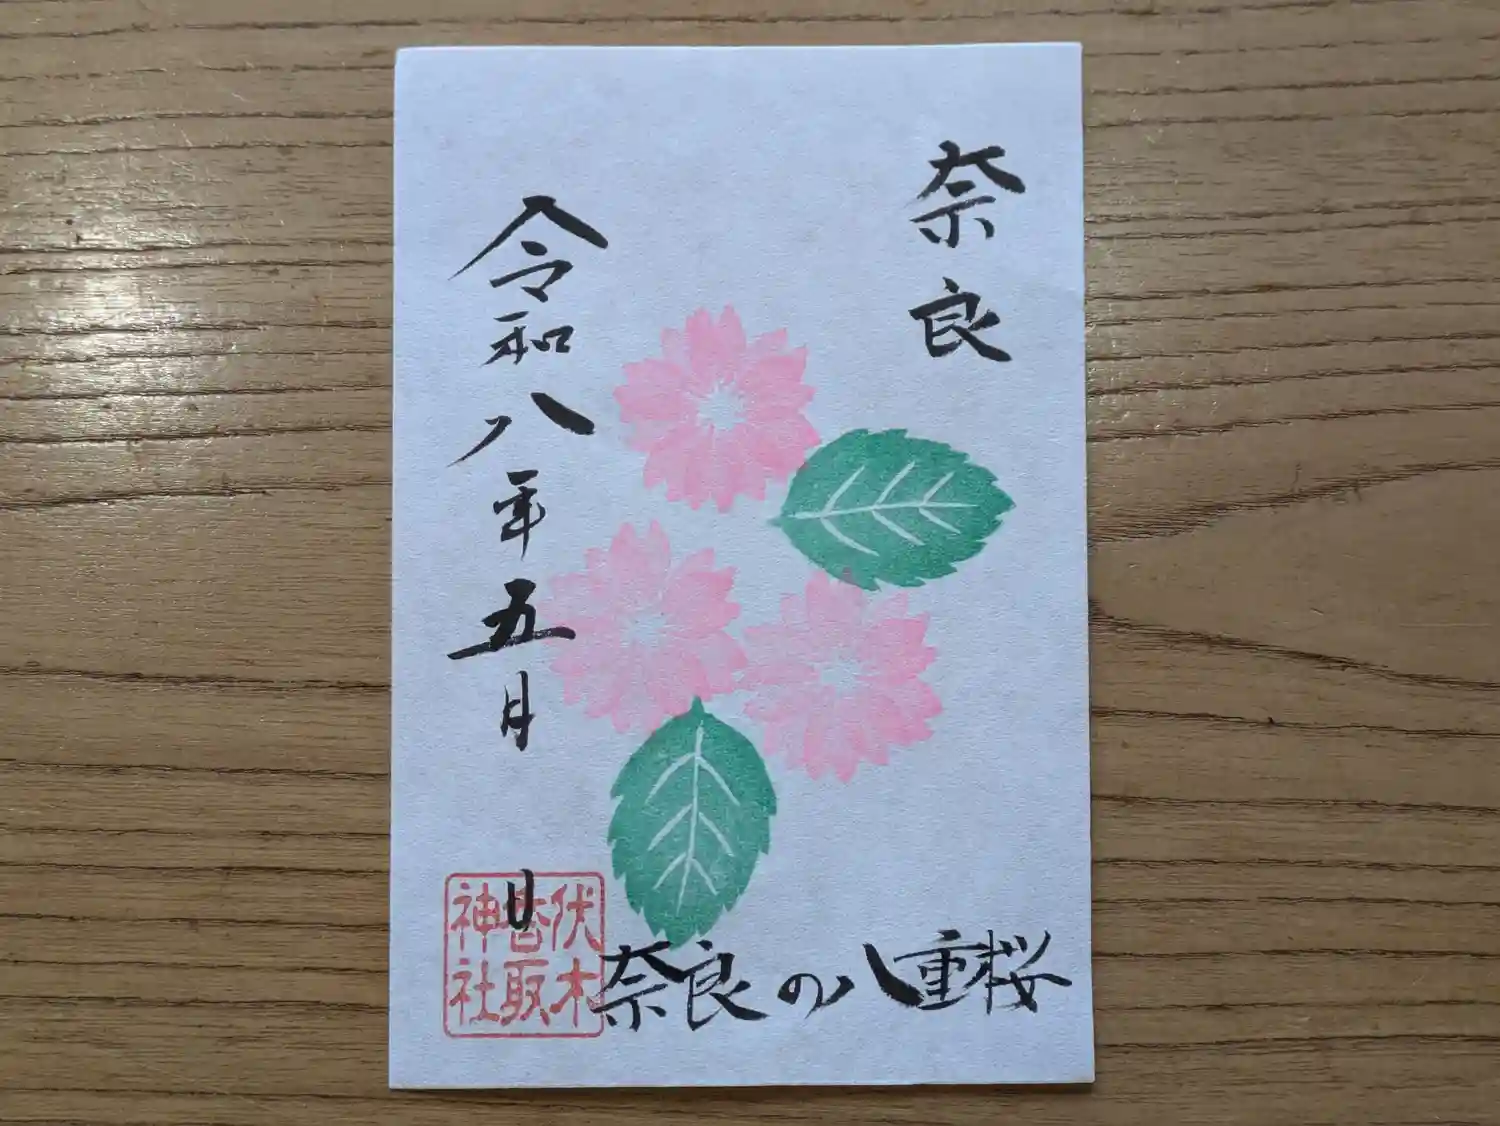 奈良
令和八年五月 日
奈良の八重桜
伏木
香取
神社